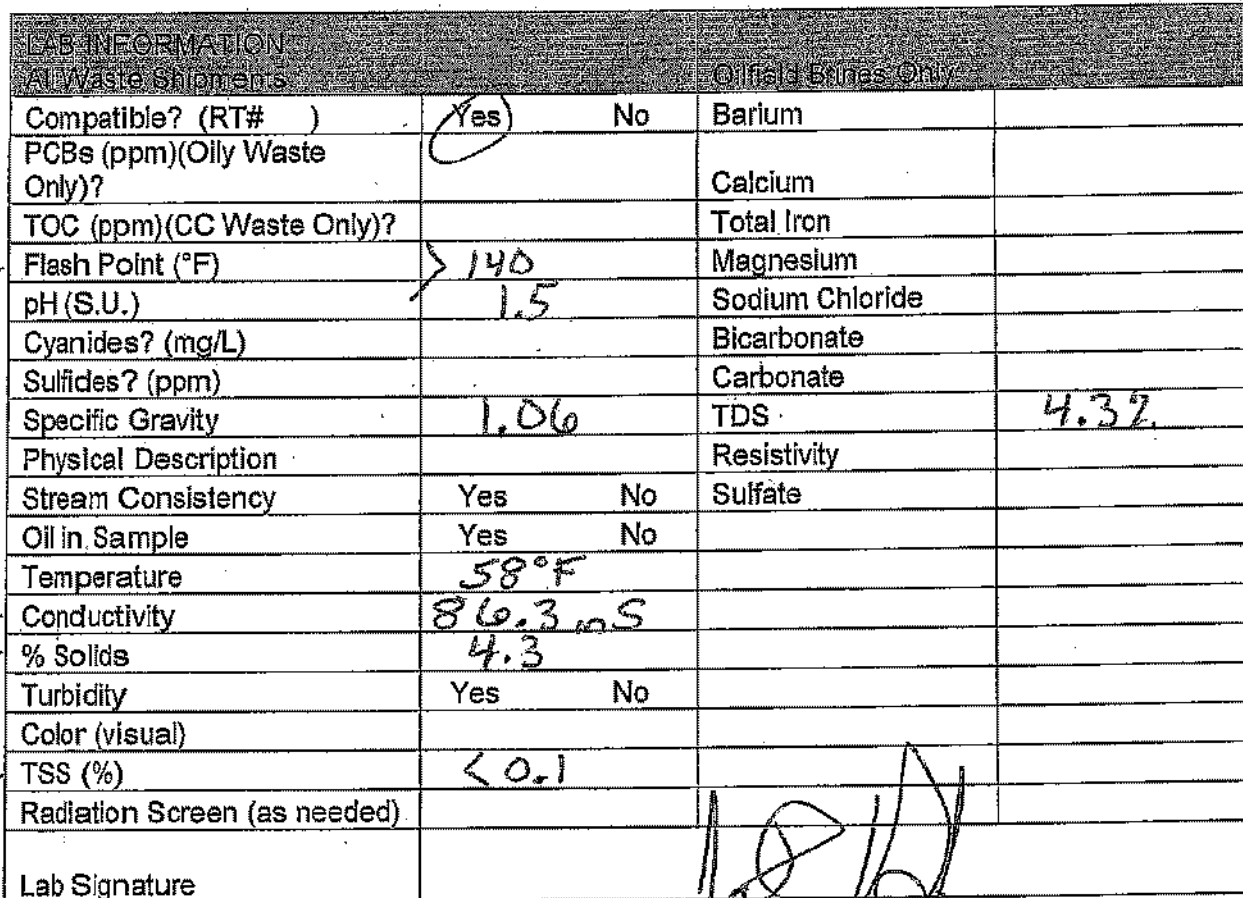 LAB INFORMATION
All Waste Shipments Oilfield Brines Only
Compatible? (RT# ) Yes No Barium
PCBs (ppm)(Oily Waste
Only)? Calcium
TOC (ppm)(CC Waste Only)? Total Iron
Flash Point (°F) > 140 Magnesium
pH (S.U.) 1.5 Sodium Chloride
Cyanides? (mg/L) Bicarbonate
Sulfides? (ppm) Carbonate
Specific Gravity 1.06 TDS 4.3%
Physical Description Resistivity
Stream Consistency Yes No Sulfate
Oil in Sample Yes No
Temperature 58°F
Conductivity 86.3 mS
% Solids 4.3
Turbidity Yes No
Color (visual)
TSS (%) < 0.1
Radiation Screen (as needed)
Lab Signature